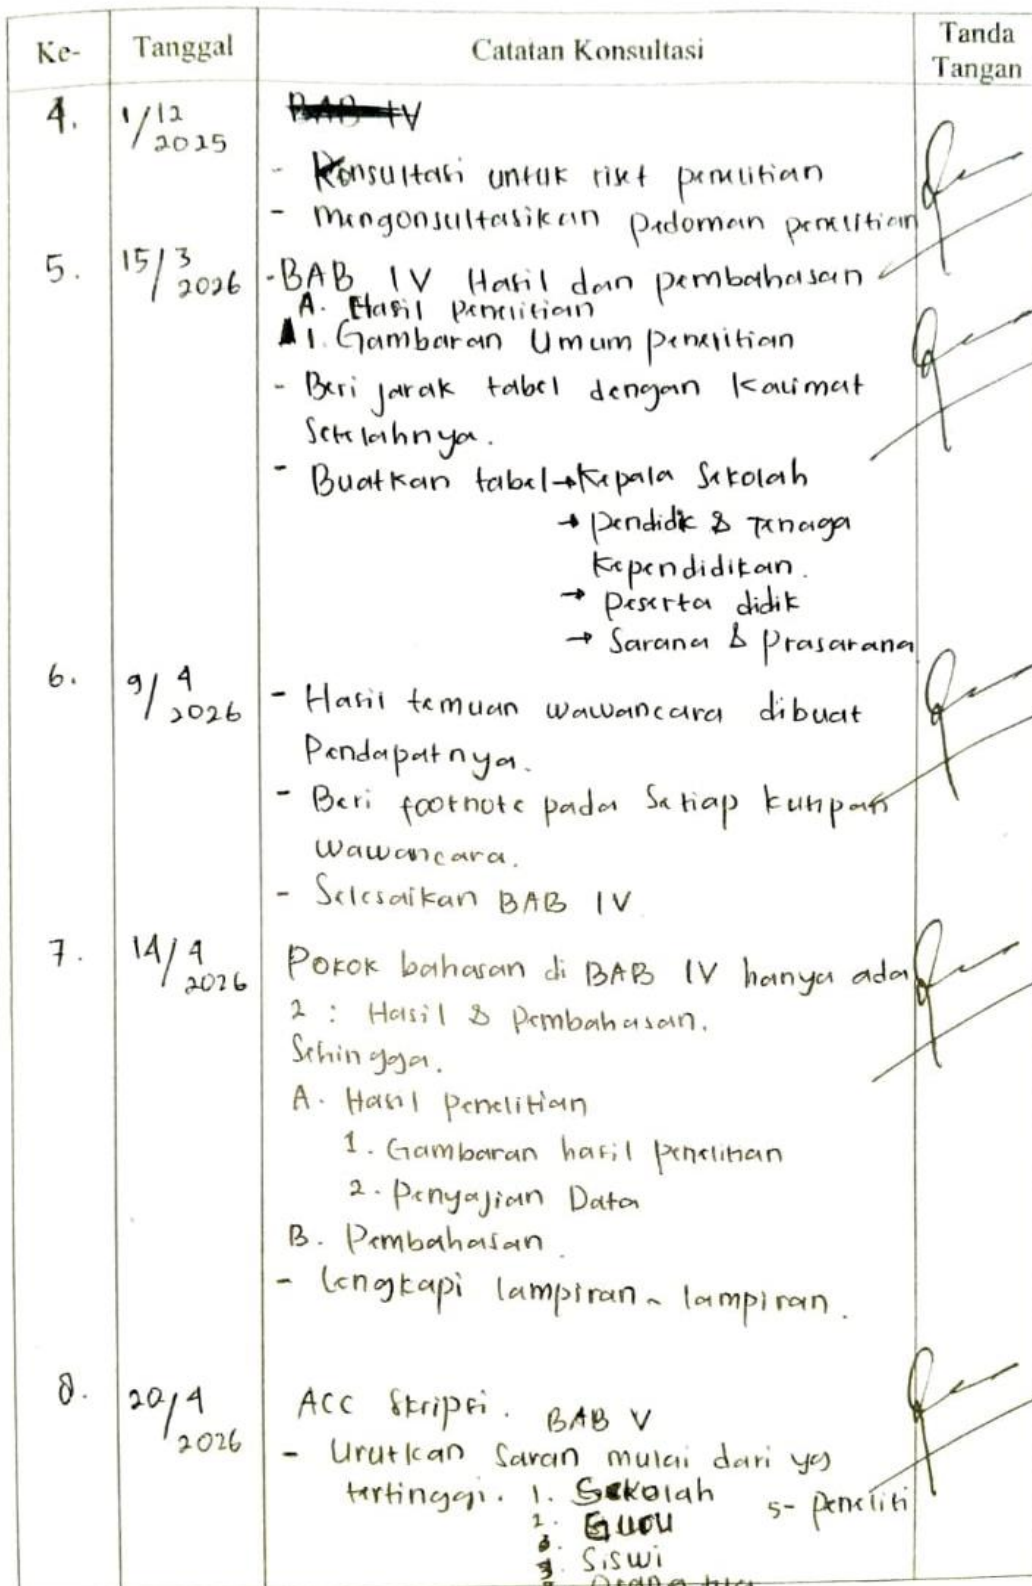 Ke- Tanggal Catatan Konsultasi Tanda Tangan
4. 1/12 2025 BAB IV
- Konsultasi untuk riset penelitian
- mengonsultasikan pedoman penelitian
5. 15/3 2026 - BAB IV Hasil dan pembahasan
A. Hasil penelitian
1. Gambaran Umum penelitian
- Beri jarak tabel dengan kalimat
setelahnya.
- Buatkan tabel → Kepala Sekolah
→ pendidik & Tenaga
kependidikan.
→ peserta didik
→ Sarana & prasarana
6. 9/4 2026 - Hasil temuan wawancara dibuat
Pendapatnya.
- Beri footnote pada Setiap kutipan
wawancara.
- Selesaikan BAB IV
7. 14/4 2026 Pokok bahasan di BAB IV hanya ada
2 : Hasil & pembahasan.
Sehingga.
A. Hasil penelitian
1. Gambaran hasil penelitian
2. Penyajian Data
B. Pembahasan.
- Lengkapi lampiran - lampiran.
8. 20/4 2026 ACC Skripsi. BAB V
- Urutkan Saran mulai dari yg
tertinggi. 1. Sekolah 5- peneliti
2. Guru
3. Siswi